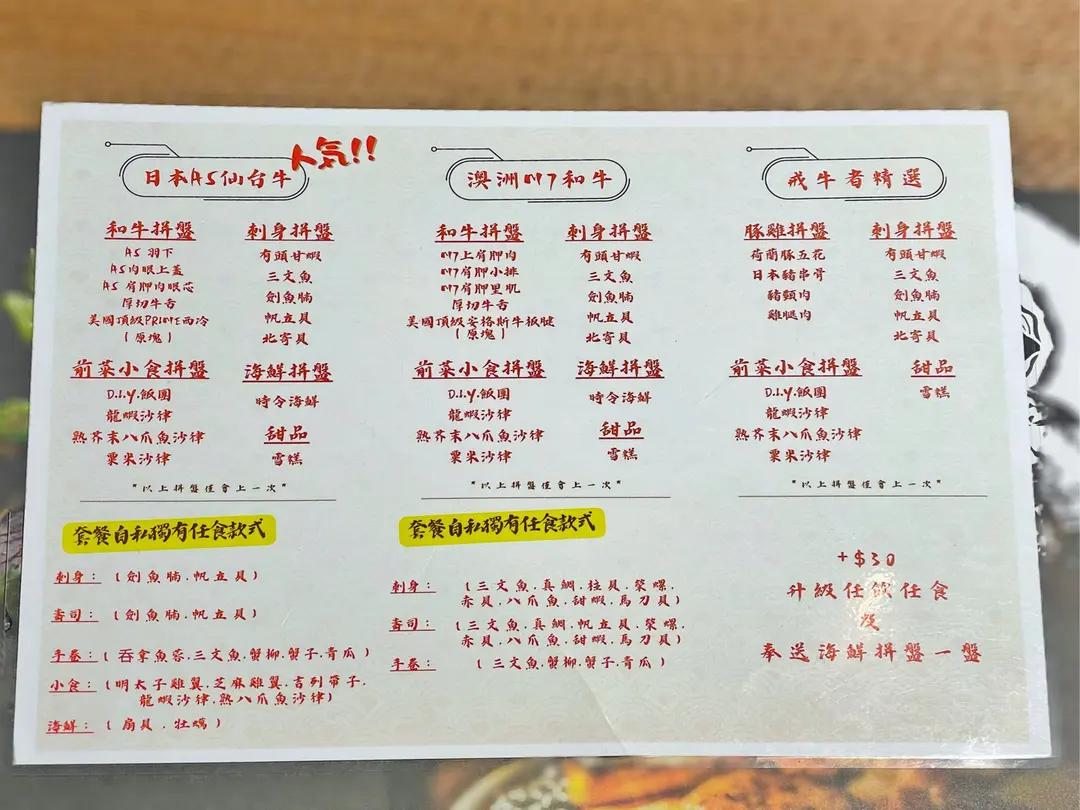 人気!!
日本A5仙台牛
和牛拼盤
A5 羽下
A5肉眼上蓋
A5 肩胛肉眼芯
厚切牛舌
美國頂級PRIME西冷
(原塊)
刺身拼盤
有頭甘蝦
三文魚
劍魚腩
帆立貝
北寄貝
前菜小食拼盤
D.I.Y.飯團
龍蝦沙律
熟芥末八爪魚沙律
粟米沙律
海鮮拼盤
時令海鮮
甜品
雪糕
"以上拼盤僅會上一次"
套餐自私獨有任食款式
刺身:(劍魚腩.帆立貝)
壽司:(劍魚腩.帆立貝)
手卷:(吞拿魚蓉.三文魚.蟹柳.蟹子.青瓜)
小食:(明太子雞翼.芝麻雞翼.吉列帶子.
龍蝦沙律.熟八爪魚沙律)
海鮮:(扇貝.牡蠣)
澳洲M7和牛
和牛拼盤
M7上肩胛肉
M7肩胛小排
M7肩胛里肌
厚切牛舌
美國頂級安格斯牛板腱
(原塊)
刺身拼盤
有頭甘蝦
三文魚
劍魚腩
帆立貝
北寄貝
前菜小食拼盤
D.I.Y.飯團
龍蝦沙律
熟芥末八爪魚沙律
粟米沙律
海鮮拼盤
時令海鮮
甜品
雪糕
"以上拼盤僅會上一次"
套餐自私獨有任食款式
刺身:(三文魚.真鯛.桂貝.榮螺.
赤貝.八爪魚.甜蝦.馬刀貝)
壽司:(三文魚.真鯛.帆立貝.榮螺.
赤貝.八爪魚.甜蝦.馬刀貝)
手卷:(三文魚.蟹柳.蟹子.青瓜)
戒牛者精選
豚雞拼盤
荷蘭豚五花
日本豬串骨
豬頸肉
雞腿肉
刺身拼盤
有頭甘蝦
三文魚
劍魚腩
帆立貝
北寄貝
前菜小食拼盤
D.I.Y.飯團
龍蝦沙律
熟芥末八爪魚沙律
粟米沙律
甜品
雪糕
"以上拼盤僅會上一次"
+$30
升級任飲任食
及
奉送海鮮拼盤一盤